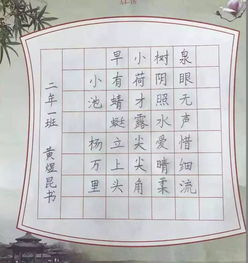 泉眼无声惜细流
树阴照水爱晴柔
小荷才露尖尖角
早有蜻蜓立上头
小池 杨万里
二年一班 黄煜昆书